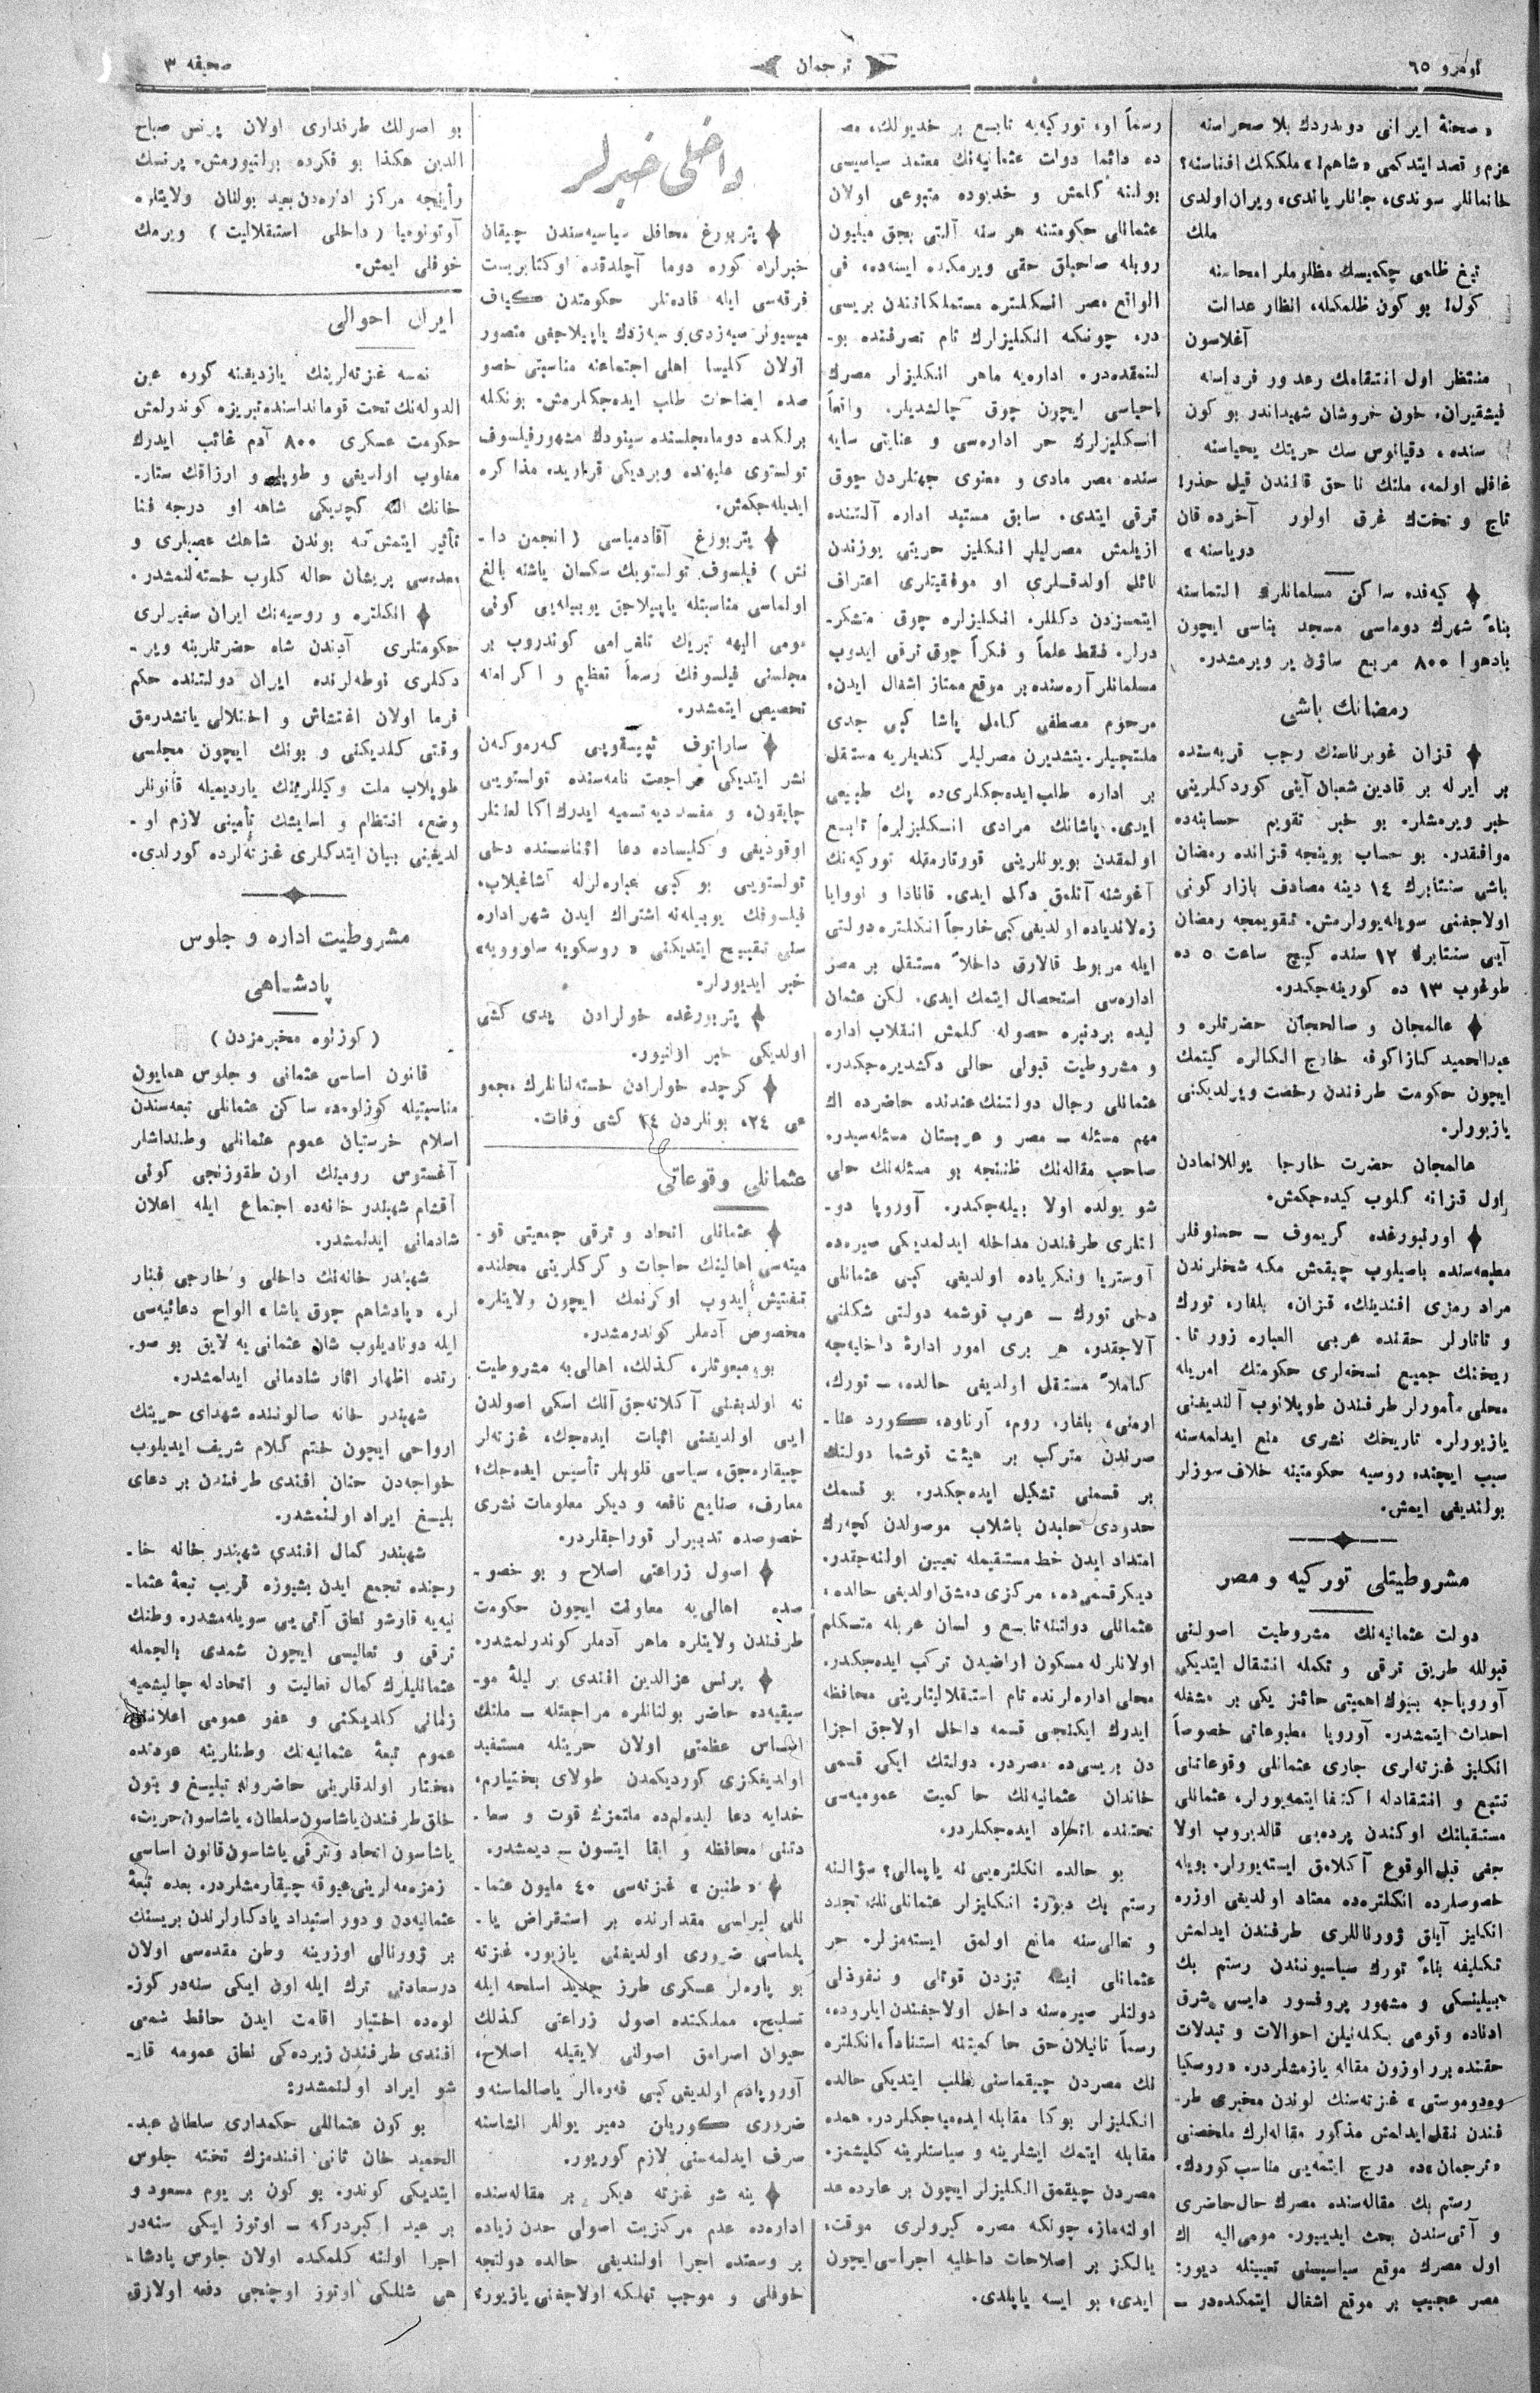 نومرو ٦٥
ترجمان
صحیفه ٣
« صحنهٔ ایرانی دوندردك بلا صحراسنه
عزم و قصد ایتدكمی «شاهم!» ملككك افناسنه؟
خانمانلر سوندی، جانلر یاندی، ویران اولدی
ملك
تیغ ظلمی چكمیسك مظلوملر امحاسنه
كول! بو كون ظلمكله، انظار عدالت
آغلاسون
منتظر اول انتقامك رعد ور فرداسنه
فیشقیران، خون خروشان شهیداندر بو كون
سنده، دقیانوس سك حریتك یحیاسنه
غافل اولمه، ملتك ناحق قانندن قیل حذر!
تاج و تختك غرق اولور آخرده قان
دریاسنه »
كیه‌فده ساكن مسلمانلرڭ التماسنه
بناءً شهرك دوماسی مسجد بناسی ایچون
بادهوا ٨٠٠ مربع ساژن یر ویرمشدر.
رمضانك باشی
قزان غوبرناسنك رجب قریه‌سنده
بر ایرله بر قادین شعبان آینی كوردكلرینی
خبر ویرمشلر. بو خبر تقویم حسابنه‌ده
موافقدر. بو حساب بوینجه قزانده رمضان
باشی سنتابرك ١٤ دینه مصادف بازار كونی
اولاجغنی سویله‌یورلرمش. تقویمجه رمضان
آیی سنتابرڭ ١٢ سنده كیچ ساعت ٥ ده
طوغوب ١٣ ده كورینه‌جكدر.
عالمجان و صالحجان حضرتلره و
عبدالحمید كازاكوفه خارج الكالره كیتمك
ایچون حكومت طرفندن رخصت ویرلدیكنی
یازیورلر.
عالمجان حضرت خارجا یوللانمادن
اول قزانه كلوب كیده‌جكمش.
اورنبورغده كریموف ــ حسنوفلر
مطبعه‌سنده باصیلوب چیقمش مكه شخلرندن
مراد رمزی افندینك، قزان، بلغار، تورك
و تاتارلر حقنده عربی العباره زور تا‌ـ
ریخنك جمیع نسخه‌لری حكومتك امریله
محلی مأمورلر طرفندن طوپلانوب آلندیغنی
یازیورلر. تاریخك نشری منع ایدلمه‌سنه
سبب ایچنده روسیه حكومتینه خلاف سوزلر
بولندیغی ایمش.
مشروطیتلی توركیه و مصر
دولت عثمانیه‌نك مشروطیت اصولنی
قبولله طریق ترقی و تكمله انتقال ایتدیكی
آوروپاجه بیوك اهمیتی حائز یكی بر مشغله
احداث ایتمشدر. آوروپا مطبوعاتی خصوصاً
انكلیز غزته‌لری جاری عثمانلی وقوعاتنی
تتبع و انتقادله اكتفا ایتمه‌یورلر، عثمانلی
مستقبلنك اوكندن پرده‌یی قالدیروب اولا
جغی قبل الوقوع آكلامق ایسته‌یورلر. بویله
خصوصلرده انكلتره‌ده معتاد اولدیغی اوزره
انكلیز آیلق ژورناللری طرفندن ایدلمش
تكلیفه بناءً تورك سیاسیوندن رستم بك
بیلینسكی و مشهور پروفسور دایسی شرق
ادناده وقوعی بكلمه‌نیلن احوالات و تبدلات
حقنده برر اوزون مقاله یازمشلردر. «روسكیا
وه‌دوموستی» غزته‌سنك لوندن مخبری طر‌ـ
فندن نقل ایدلمش مذكور مقاله‌لرك ملخصنی
«ترجمان»ده درج ایتمه‌یی مناسب كوردك.
رستم بك مقاله‌سنده مصرك حال حاضری
و آتی‌سندن بحث ایدییور. مومی‌الیه اڭ
اول مصرك موقع سیاسیسنی تعیینله دیور:
مصر عجیب بر موقع اشغال ایتمكده‌در ــ
رسماً او، توركیه‌یه تابع بر خدیولك، مصر
ده دائما دولت عثمانیه‌نك معتمد سیاسیسی
بولنه كلمش و خدیوده متبوعی اولان
عثمانلی حكومتنه هر سنه آلتی بچق میلیون
روبله صاحبلق حقی ویرمكده ایسه‌ده، فی
الواقع مصر انكلتره مستملكاتندن بریسی
در، چونكه انكلیزلرك تام تصرفنده بو‌ـ
لنمقده‌در. اداره‌یه ماهر انكلیزلر مصرك
احیاسی ایچون چوق چالشدیلر. واقعاً
انكلیزلرك حر اداره‌سی و عنایتی سایه
سنده مصر مادی و معنوی جهتلردن چوق
ترقی ایتدی. سابق مستبد اداره آلتنده
ازیلمش مصرلیلر انكلیز حریتی یوزندن
نائل اولدقلری او موفقیتلری اعتراف
ایتمسزدن دكللر. انكلیزلره چوق متشكر‌ـ
درلر. فقط علماً و فكراً چوق ترقی ایدوب
مسلمانلر آره‌سنده بر موقع ممتاز اشغال ایدن،
مرحوم مصطفی كامل پاشا كبی جدی
ملتجیلر. یتشدیرن مصرلیلر كندیلریه مستقل
بر اداره طلب ایده‌جكلری‌ده پك طبیعی
ایدی. پاشانك مرادی انكلیزلره تابع
اولمقدن بویونلرینی قورتارمقله توركیه‌نك
آغوشنه آتلمق دكل ایدی. قانادا و نووایا
زه‌لاندیاده اولدیغی كبی خارجاً انكلتره دولتی
ایله مربوط قالارق داخلاً مستقل بر مصر
اداره‌سی استحصال ایتمك ایدی. لكن عثمان
لیده بردنبره حصوله كلمش انقلاب اداره
و مشروطیت قبولی حالی دكشدیره‌جكدر.
عثمانلی رجال دولتنك عندنده حاضرده اڭ
مهم مسئله ــ مصر و عربستان مسئله‌سیدر.
صاحب مقاله‌نك ظننجه بو مسئله‌نك حلی
شو یولده اولا بیله‌جكدر. آوروپا دو‌ـ
لتلری طرفندن مداخله ایدلمدیكی صیره‌ده
آوستریا ونكریاده اولدیغی كبی عثمانلی
دخی تورك ــ عرب قوشمه دولتی شكلنی
آلاجقدر، هر بری امور ادارۀ داخلیه‌جه
كاملاً مستقل اولدیغی حالده، ــ تورك،
ارمنی، بلغار. روم، آرناود، كورد عنا‌ـ
صرندن متركب بر هیئت قوشما دولتك
بر قسمنی تشكیل ایده‌جكدر. بو قسمك
حدودی حلبدن باشلاب موصولدن كچه‌رك
امتداد ایدن خط مستقیمله تعیین اولنه‌جقدر.
دیكر قسمی ده، مركزی دمشق اولدیغی حالده،
عثمانلی دولتنه تابع و لسان عربله متكلم
اولانلرله مسكون اراضیدن تركب ایده‌جكدر.
محلی اداره‌لرنده تام استقلالیتلرینی محافظه
ایدرك ایكنجی قسمه داخل اولاجق اجزا
دن بریسی‌ده مصردر. دولتك ایكی قسمی
خاندان عثمانیه‌نك حاكمیت عمومیه‌سی
تحتنده اتحاد ایده‌جكلردر.
بو حالده انكلتره‌یی نه یاپمالی؟ سؤالنه
رستم بك دیور: انكلیزلر عثمانلی‌نك تجدد
و تعالی‌سنه مانع اولمق ایسته‌مزلر. حر
عثمانلی ایسه تیزدن قوتلی و نفوذلی
دولتلر صیره‌سنه داخل اولاجغندن ایلروده،
رسماً تانیلان حق حاكمیتنه استناداً، انكلتره
نك مصردن چیقماسنی طلب ایتدیكی حالده
انكلیزلر بوكا مقابله ایده‌میه‌جكلردر. همده
مقابله ایتمك ایشلرینه و سیاستلرینه كلیشمز.
مصردن چیقمق انكلیزلر ایچون بر عارده عد
اولنه‌ماز، چونكه مصره كیرولری موقت،
یالكز بر اصلاحات داخلیه اجراسی ایچون
ایدی، بو ایسه یاپلدی.
داخلی خبرلر
پتربورغ محافل سیاسیه‌سندن چیقان
خبرلره كوره دوما آچلدقده اوكتابریست
فرقه‌سی ایله قاده‌تلر حكومتدن كیاف
میسیونر سیه‌زدی و سیه‌زدك یاپیلاجغی متصور
اولان كلیسا اهلی اجتماعنه مناسبتی خصو
صده ایضاحات طلب ایده‌جكلرمش. بونكله
برلكده دوما مجلسنده سینودك مشهور فیلسوف
تولستوی علیهنده ویردیكی قراریده مذاكره
ایدیله‌جكمش.
پتربورغ آقادمیاسی (انجمن دا‌ـ
نش) فیلسوف تولستویك سكسان یاشنه بالغ
اولماسی مناسبتله یاپیلاجق یوبیله‌یی كونی
مومی الیهه تبریك تلغرامی كوندروب بر
مجلسنی فیلسوفك رسماً تعظیم و اكرامنه
تخصیص ایتمشدر.
ساراتوف ئه‌پیسقوپی كه‌رموكه‌ن
نشر ایتدیكی مراجعت نامه‌سنده تولستویی
چاپقون، و مفسد دیه تسمیه ایدرك اكا لعنتلر
اوقودیغی و كلیساده دعا اثناسنده دخی
تولستویی بو كبی عباره‌لرله آشاغیلاب،
فیلسوفك یوبیله‌نه اشتراك ایدن شهر اداره
سنی تقبیح ایتدیكنی «روسكویه سلووویه»
خبر ایدیورلر.
پتربورغده خولرادن یدی كشی
اولدیكی خبر اولنیور.
كرچده خولرادن خسته‌لنانلرك مجمو
عی ٢٤، بونلردن ١٤ كشی وفات.
عثمانلی وقوعاتی
عثمانلی اتحاد و ترقی جمعیتی قو‌ـ
میته‌سی اهالینك حاجات و كركلرینی محلنده
تفتیش ایدوب اوكرنمك ایچون ولایتلره
مخصوص آدملر كوندرمشدر.
بو، مبعوثلر، كذلك، اهالی‌یه مشروطیت
نه اولدیغنی آكلاته‌جق آنك اسكی اصولدن
ایی اولدیغنی اثبات ایده‌جك، غزته‌لر
چیقاره‌جق، سیاسی قلوبلر تأسیس ایده‌جك؛
معارف، صنایع نافعه و دیكر معلومات نشری
خصوصده تدبیرلر قوراجقلردر.
اصول زراعتی اصلاح و بو خصو‌ـ
صده اهالی‌یه معاونت ایچون حكومت
طرفندن ولایتلره ماهر آدملر كوندرلمشدر.
پرنس عزالدین افندی بر لیلۀ مو‌ـ
سیقیه‌ده حاضر بولنانلره مراجعتله ــ ملتك
اساس عظمتی اولان حریتله مستفید
اولدیغكزی كوردیكمدن طولای بختیارم،
خدایه دعا ایده‌لم‌ده ملتمزڭ قوت و سعا‌ـ
دتنی محافظه و ابقا ایتسون ــ دیمشدر.
«طنین» غزته‌سی ٤٠ ملیون عثما‌ـ
نلی لیراسی مقدارنده بر استقراض یا‌ـ
پلماسی ضروری اولدیغنی یازیور. غزته
بو پاره‌لر عسكری طرز جدید اسلحه ایله
تسلیح، مملكتده اصول زراعتی كذلك
حیوان اصرامق اصولنی لایقیله اصلاح،
آوروپاده اولدیغی كبی فه‌رمالر یاصالماسنه و
ضروری كوریلن دمیر یوللر انشاسنه
صرف ایدلمه‌سنی لازم كوریور.
ینه شو غزته دیكر بر مقاله‌سنده
اداره‌ده عدم مركزیت اصولی حدن زیاده
بر وسعتده اجرا اولندیغی حالده دولتجه
خوفلی و موجب تهلكه اولاجغنی یازیور؛
بو اصولك طرفداری اولان پرنس صباح
الدین هكذا بو فكرده بولنیورمش، پرنسك
رأینجه مركز اداره‌دن بعید بولنان ولایتلره
آوتونومیا (داخلی استقلالیت) ویرمك
خوفلی ایمش.
ایران احوالی
نمسه غزته‌لرینك یازدیغنه كوره عین
الدوله‌نك تحت قومانداسنده تبریزه كوندرلمش
حكومت عسكری ٨٠٠ آدم غائب ایدرك
مغلوب اولدیغی و طوپلر و ارزاقك ستار‌ـ
خانك الله كچدیكی شاهه او درجه فنا
تأثیر ایتمش كه بوندن شاهك عصبلری و
معده‌سی پریشان حاله كلوب خسته‌لنمشدر.
انكلتره و روسیه‌نك ایران سفیرلری
حكومتلری آدندن شاه حضرتلرینه ویر‌ـ
دكلری نوطه‌لرنده ایران دولتنده حكم
فرما اولان اغتشاش و اختلالی یاتشدرمق
وقتی كلدیكنی و بونك ایچون مجلسی
طوپلاب ملت وكیللرینك یاردیمیله قانونلر
وضع، انتظام و اسایشك تأمینی لازم او‌ـ
لدیغنی بیان ایتدكلری غزته‌لرده كورلدی.
مشروطیت اداره و جلوس
پادشاهی
(كوزلوه مخبرمزدن)
قانون اساسی عثمانی و جلوس همایون
مناسبتیله كوزلوه‌ده ساكن عثمانلی تبعه‌سندن
اسلام خرستیان عموم عثمانلی وطنداشلر
آغستوس رومینك اون طقوزنجی كونی
آقشام شهبندر خانه‌ده اجتماع ایله اعلان
شادمانی ایدلمشدر.
شهبندر خانه‌نك داخلی و خارجی فنار
لر، «پادشاهم چوق یاشا» الواح دعائیه‌سی
ایله دونادیلوب شان عثمانی یه لایق بو صو‌ـ
رتده اظهار اثار شادمانی ایدلمشدر.
شهبندر خانه صالوننده شهدای حریتك
ارواحی ایچون ختم كلام شریف ایدیلوب
خواجه‌دن حنان افندی طرفندن بر دعای
بلیغ ایراد اولنمشدر.
شهبندر كمال افندی شهبندر خانه خا‌ـ
رجنده تجمع ایدن بشیوزه قریب تبعۀ عثما‌ـ
نیه‌یه قارشو نطق آتی یی سویله‌مشدر، وطنك
ترقی و تعالیسی ایچون شمدی بالجمله
عثمانلیلرك كمال فعالیت و اتحادله چالیشمیه
زمانی كلدیكنی و عفو عمومی اعلاننی
عموم تبعۀ عثمانیه‌نك وطنلرینه عودتده
مختار اولدقلرینی حاضرونه تبلیغ و بتون
خلق طرفندن یاشاسون سلطان، یاشاسون حریت،
یاشاسون اتحاد و ترقی یاشاسون قانون اساسی
زمزمه‌لرینی عیوقه چیقارمشلردر. بعده تبعۀ
عثمانیه‌دن و دور استبداد یادكارلرندن بریسنك
بر ژورنالی اوزرینه وطن مقدسه‌سی اولان
درسعادتی ترك ایله اون ایكی سنه‌در كوز‌ـ
لوه‌ده اختیار اقامت ایدن حافظ شمعی
افندی طرفندن زیرده‌كی نطق عمومه قار‌ـ
شو ایراد اولنمشدر:
بو كون عثمانلی حكمداری سلطان عبد‌ـ
الحمید خان ثانی افندمزك تخته جلوس
ایتدیكی كوندر. بو كون بر یوم مسعود و
بر عید اكبردركه ــ اوتوز ایكی سنه‌در
اجرا اولنه كلمكده اولان جلوس پادشا‌ـ
هی شنلكی اوتوز اوچنجی دفعه اولارق